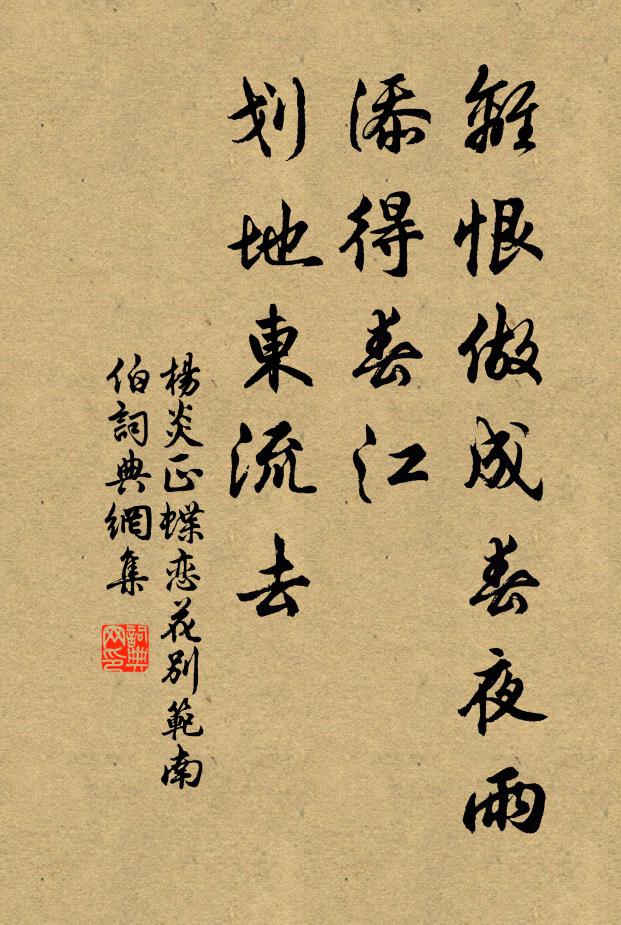 離恨做成春夜雨
添得春江
划地東流去
楊炎正蝶恋花別範南
伯詞典網集
詞典
网印